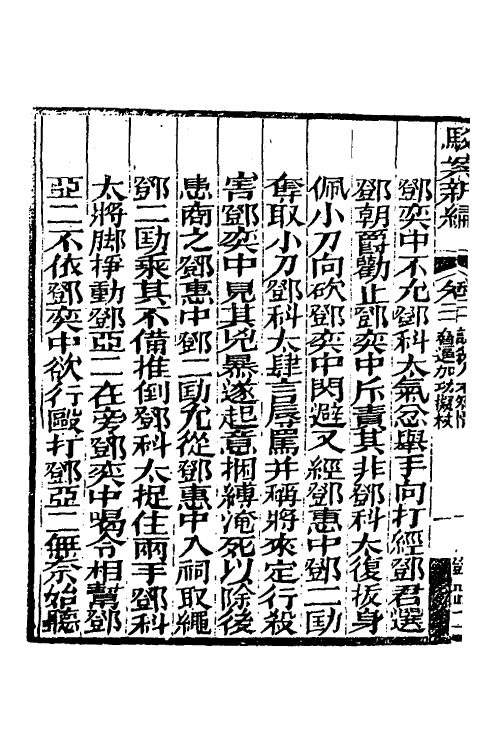 駁案新編
鄧奕中不允鄧科太氣忿舉手向打經鄧君選
鄧朝爵勸止鄧奕中斥責其非鄧科太復拔身
佩小刀向砍鄧奕中閃避又經鄧惠中鄧二劻
奪取小刀鄧科太肆言辱罵并稱將來定行殺
害鄧奕中見其兇暴遂起意捆縛淹死以除後
患商之鄧惠中鄧二劻允從鄧惠中入祠取繩
鄧二劻乘其不備推倒鄧科太捉住兩手鄧科
太將脚掙動鄧亞二在旁鄧奕中喝令相幫鄧
亞二不依鄧奕中欲行毆打鄧亞二無奈始聽